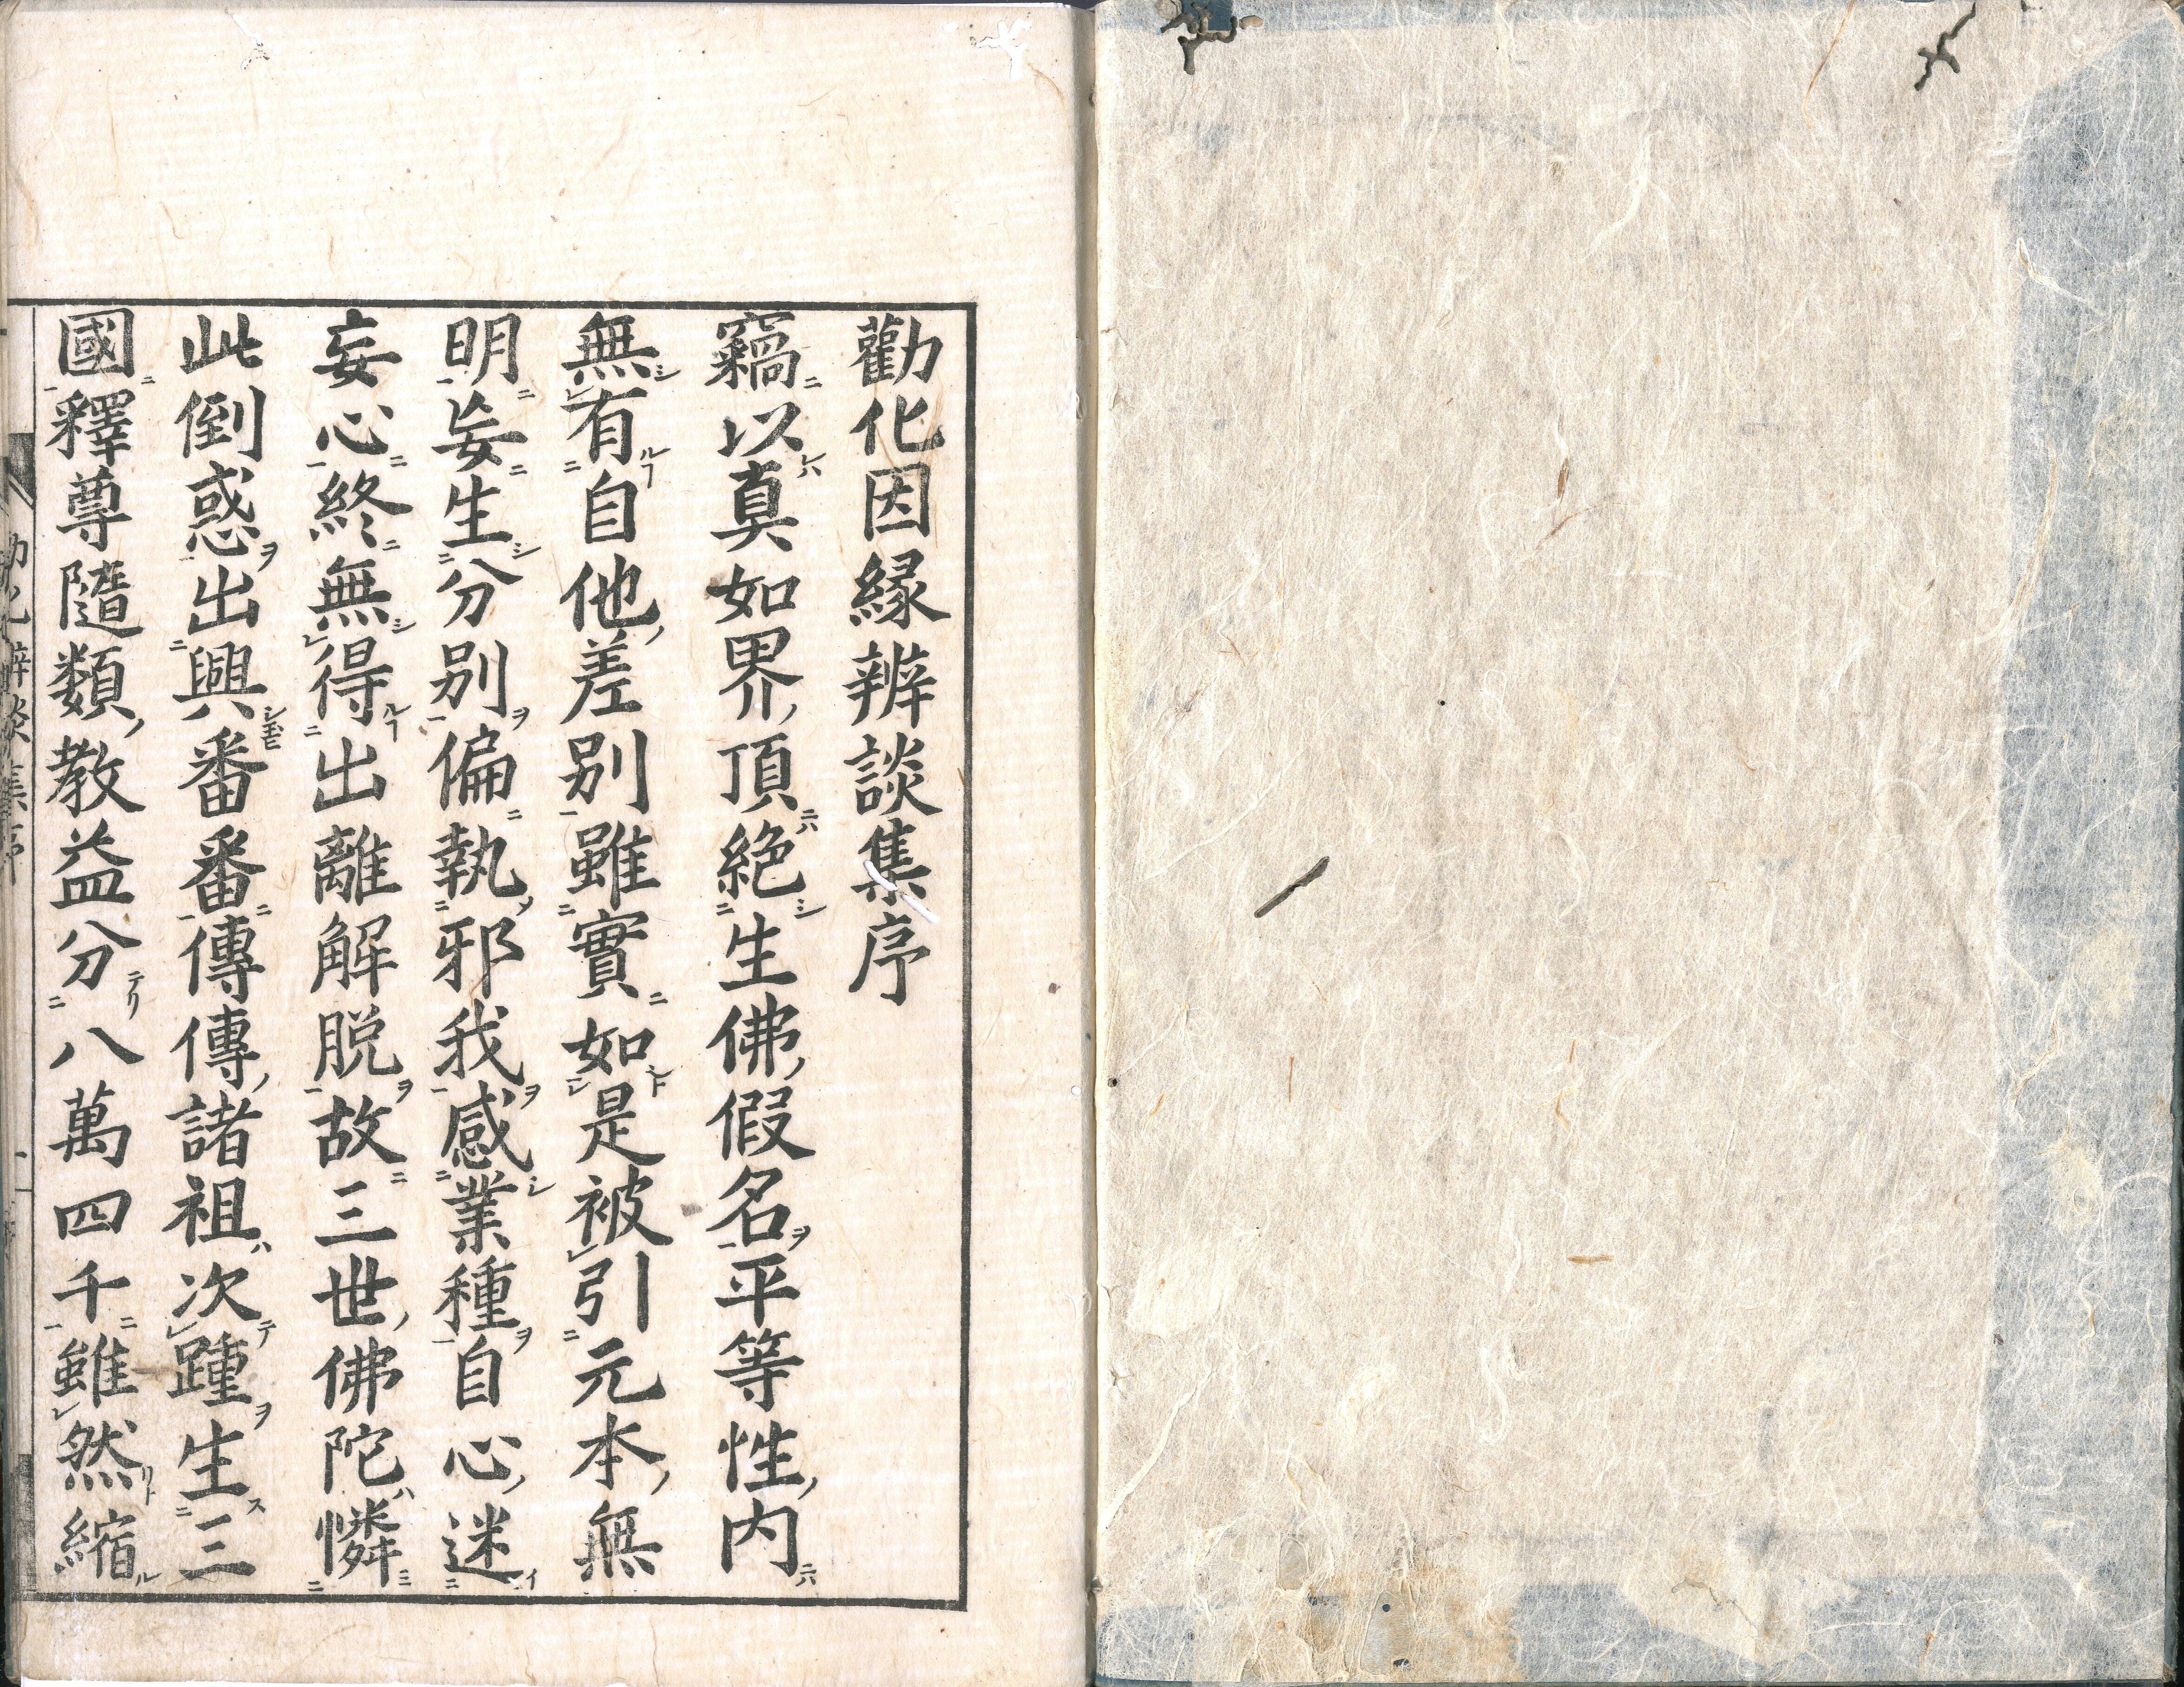 勸化因縁辨談集序
竊以真如界頂絶生佛假名平等性内
無有自他差别雖實如是被引元本無
明妄生分别偏執邪我感業種自心迷
妄心終無得出離解脱故三世佛陀憐
此倒惑出興番番傳傳諸祖次踵生三
國釋尊隨類教益分八萬四千雖然縮